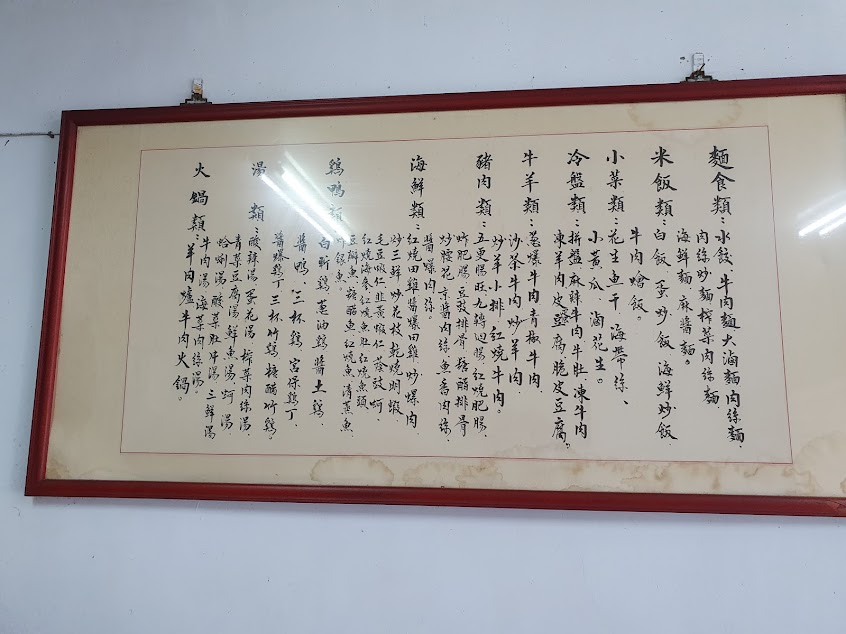 麵食類：水餃、牛肉麵大滷麵肉絲麵、
肉絲炒麵榨菜肉絲麵、
海鮮麵、麻醬麵。
米飯類：白飯、蛋炒飯、海鮮炒飯、
牛肉燴飯。
小菜類：花生魚干、海帶絲、
小黃瓜、滷花生。
冷盤類：拼盤麻辣牛肉牛肚凍牛肉
凍羊肉皮蛋豆腐、脆皮豆腐。
牛羊類：蔥爆牛肉青椒牛肉、
沙茶牛肉炒羊肉、
炒羊小排、紅燒牛肉。
豬肉類：五更腸旺九轉回腸、紅燒肥腸、
炒肥腸、豆豉排骨、糖醋排骨
炒腰花、京醬肉絲、魚香肉絲、
醬爆肉絲。
海鮮類：紅燒田雞醬爆田雞、炒螺肉
炒三鮮、炒花枝、乾燒明蝦、
毛豆蝦仁韭黃蝦仁、蔭豉蚵、
紅燒海參、紅燒魚肚紅燒魚頭、
豆瓣魚、糖醋魚紅燒魚、清蒸魚、
銀魚。
鷄鴨類：白斬鷄、蔥油鷄、醬土鷄、
醬鴨、三杯鷄、宮保鷄丁、
醬爆鷄丁三杯竹鷄、糖醋竹鷄、
湯類：酸辣湯、蛋花湯、榨菜肉絲湯、
青菜豆腐湯、鮮魚湯、蚵湯
蛤蜊湯、酸菜肚片湯、三鮮湯
牛肉湯、海菜肉絲湯。
火鍋類：羊肉爐、牛肉火鍋。